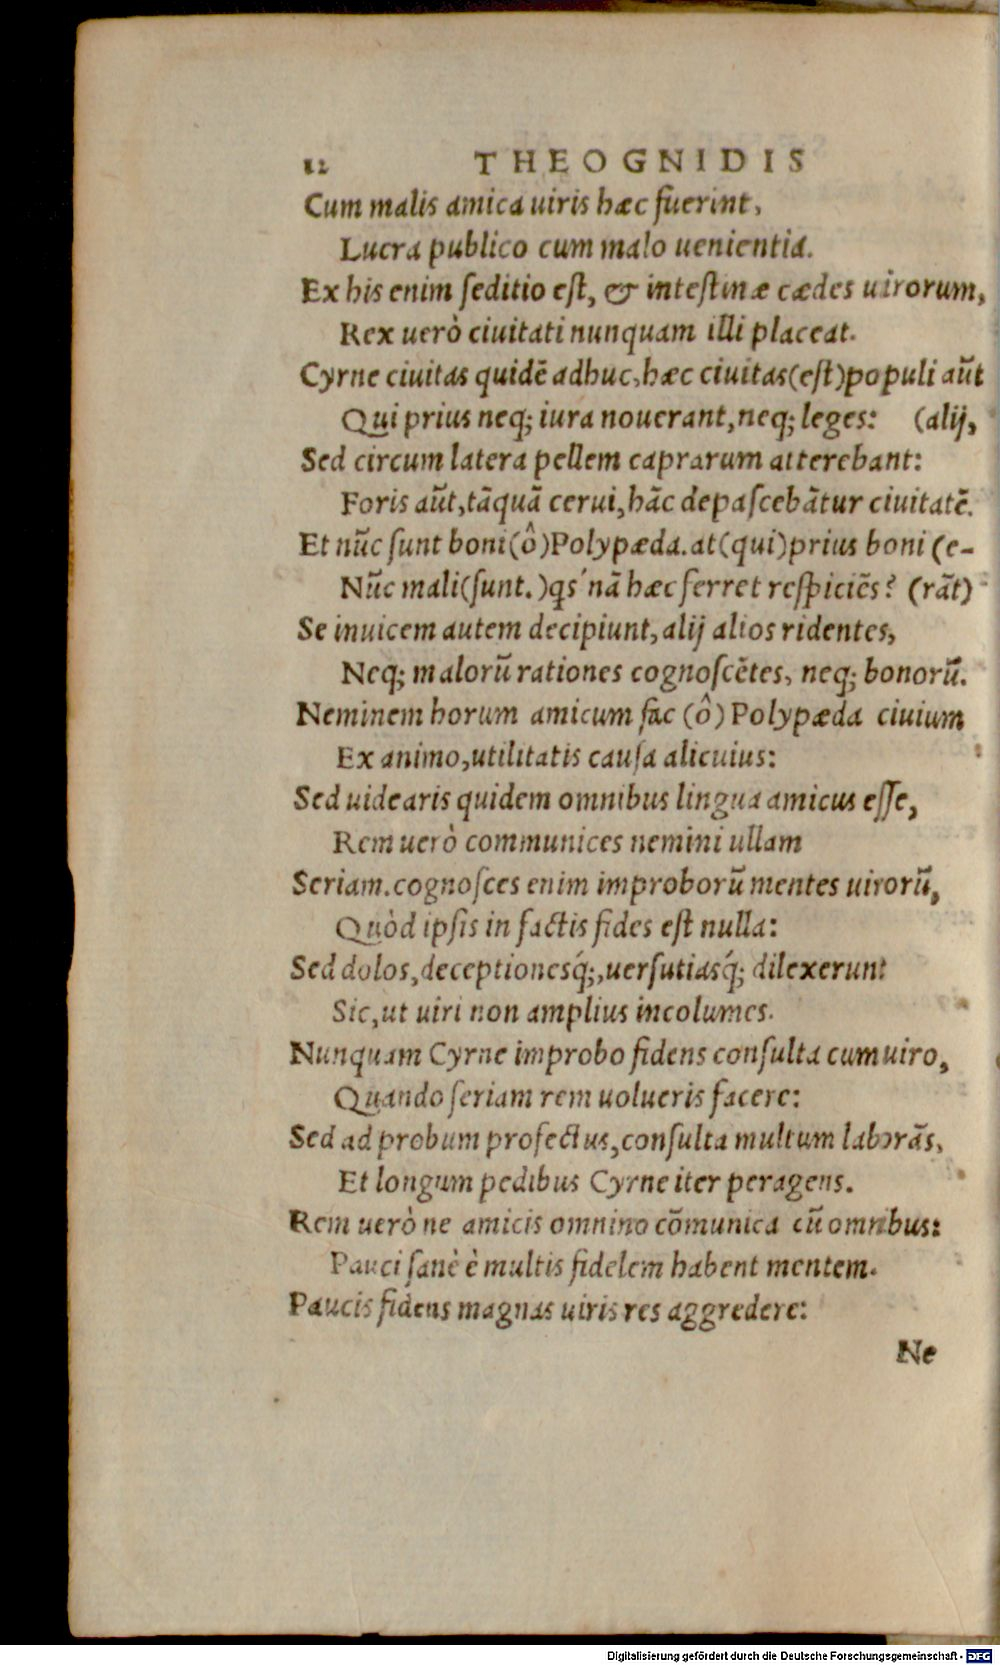 12 THEOGNIDIS
Cum malis amica uiris hæc fuerint,
Lucra publico cum malo uenientia.
Ex his enim ſeditio eſt, & inteſtinæ cædes uirorum,
Rex uerò ciuitati nunquam illi placeat.
Cyrne ciuitas quidē adhuc, hæc ciuitas (eſt) populi aūt
Qui prius neq; iura nouerant, neq; leges: (alij,
Sed circum latera pellem caprarum atterebant:
Foris aūt, tāquā cerui, hāc depaſcebātur ciuitatē.
Et nūc ſunt boni (ô) Polypæda. at (qui) prius boni (e-
Nūc mali (ſunt.) qs' nā hæc ferret reſpiciēs? (rāt)
Se inuicem autem decipiunt, alij alios ridentes,
Neq; malorū rationes cognoſcētes, neq; bonorū.
Neminem horum amicum fac (ô) Polypæda ciuium
Ex animo, utilitatis cauſa alicuius:
Sed uidearis quidem omnibus lingua amicus eſſe,
Rem uerò communices nemini ullam
Seriam. cognoſces enim improborū mentes uirorū,
Quòd ipſis in factis fides eſt nulla:
Sed dolos, deceptionesq́;, uerſutiasq́; dilexerunt
Sic, ut uiri non amplius incolumes.
Nunquam Cyrne improbo fidens conſulta cum uiro,
Quando ſeriam rem uolueris facere:
Sed ad probum profectus, conſulta multum laborās,
Et longum pedibus Cyrne iter peragens.
Rem uerò ne amicis omnino cōmunica cū omnibus:
Pauci ſanè è multis fidelem habent mentem.
Paucis fidens magnas uiris res aggredere:
Ne
Digitalisierung gefördert durch die Deutsche Forschungsgemeinschaft - DFG